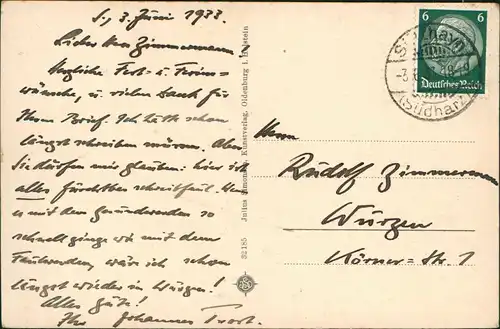 S., 3. Juni 1933.
Lieber Herr Zimmermann!
Herzliche Fest- u. Ferien-
wünsche, u. vielen Dank für
Ihren Brief. Ich hätte schon
längst schreiben müssen. Aber
Sie dürfen mir glauben: hier ist
alles furchtbar schreibfaul. Wenn
es mit dem Gesundwerden so
schnell ginge wie mit dem
Faulwerden, wäre ich schon
längst wieder in Wurzen!
Alles Gute!
Ihr Johannes
32185 Julius Simonsen, Kunstverlag, Oldenburg i. Holstein
6 6
Deutsches Reich
(Südharz)
Herrn
Rudolf Zimmermann
Wurzen
Körner-Str. 1